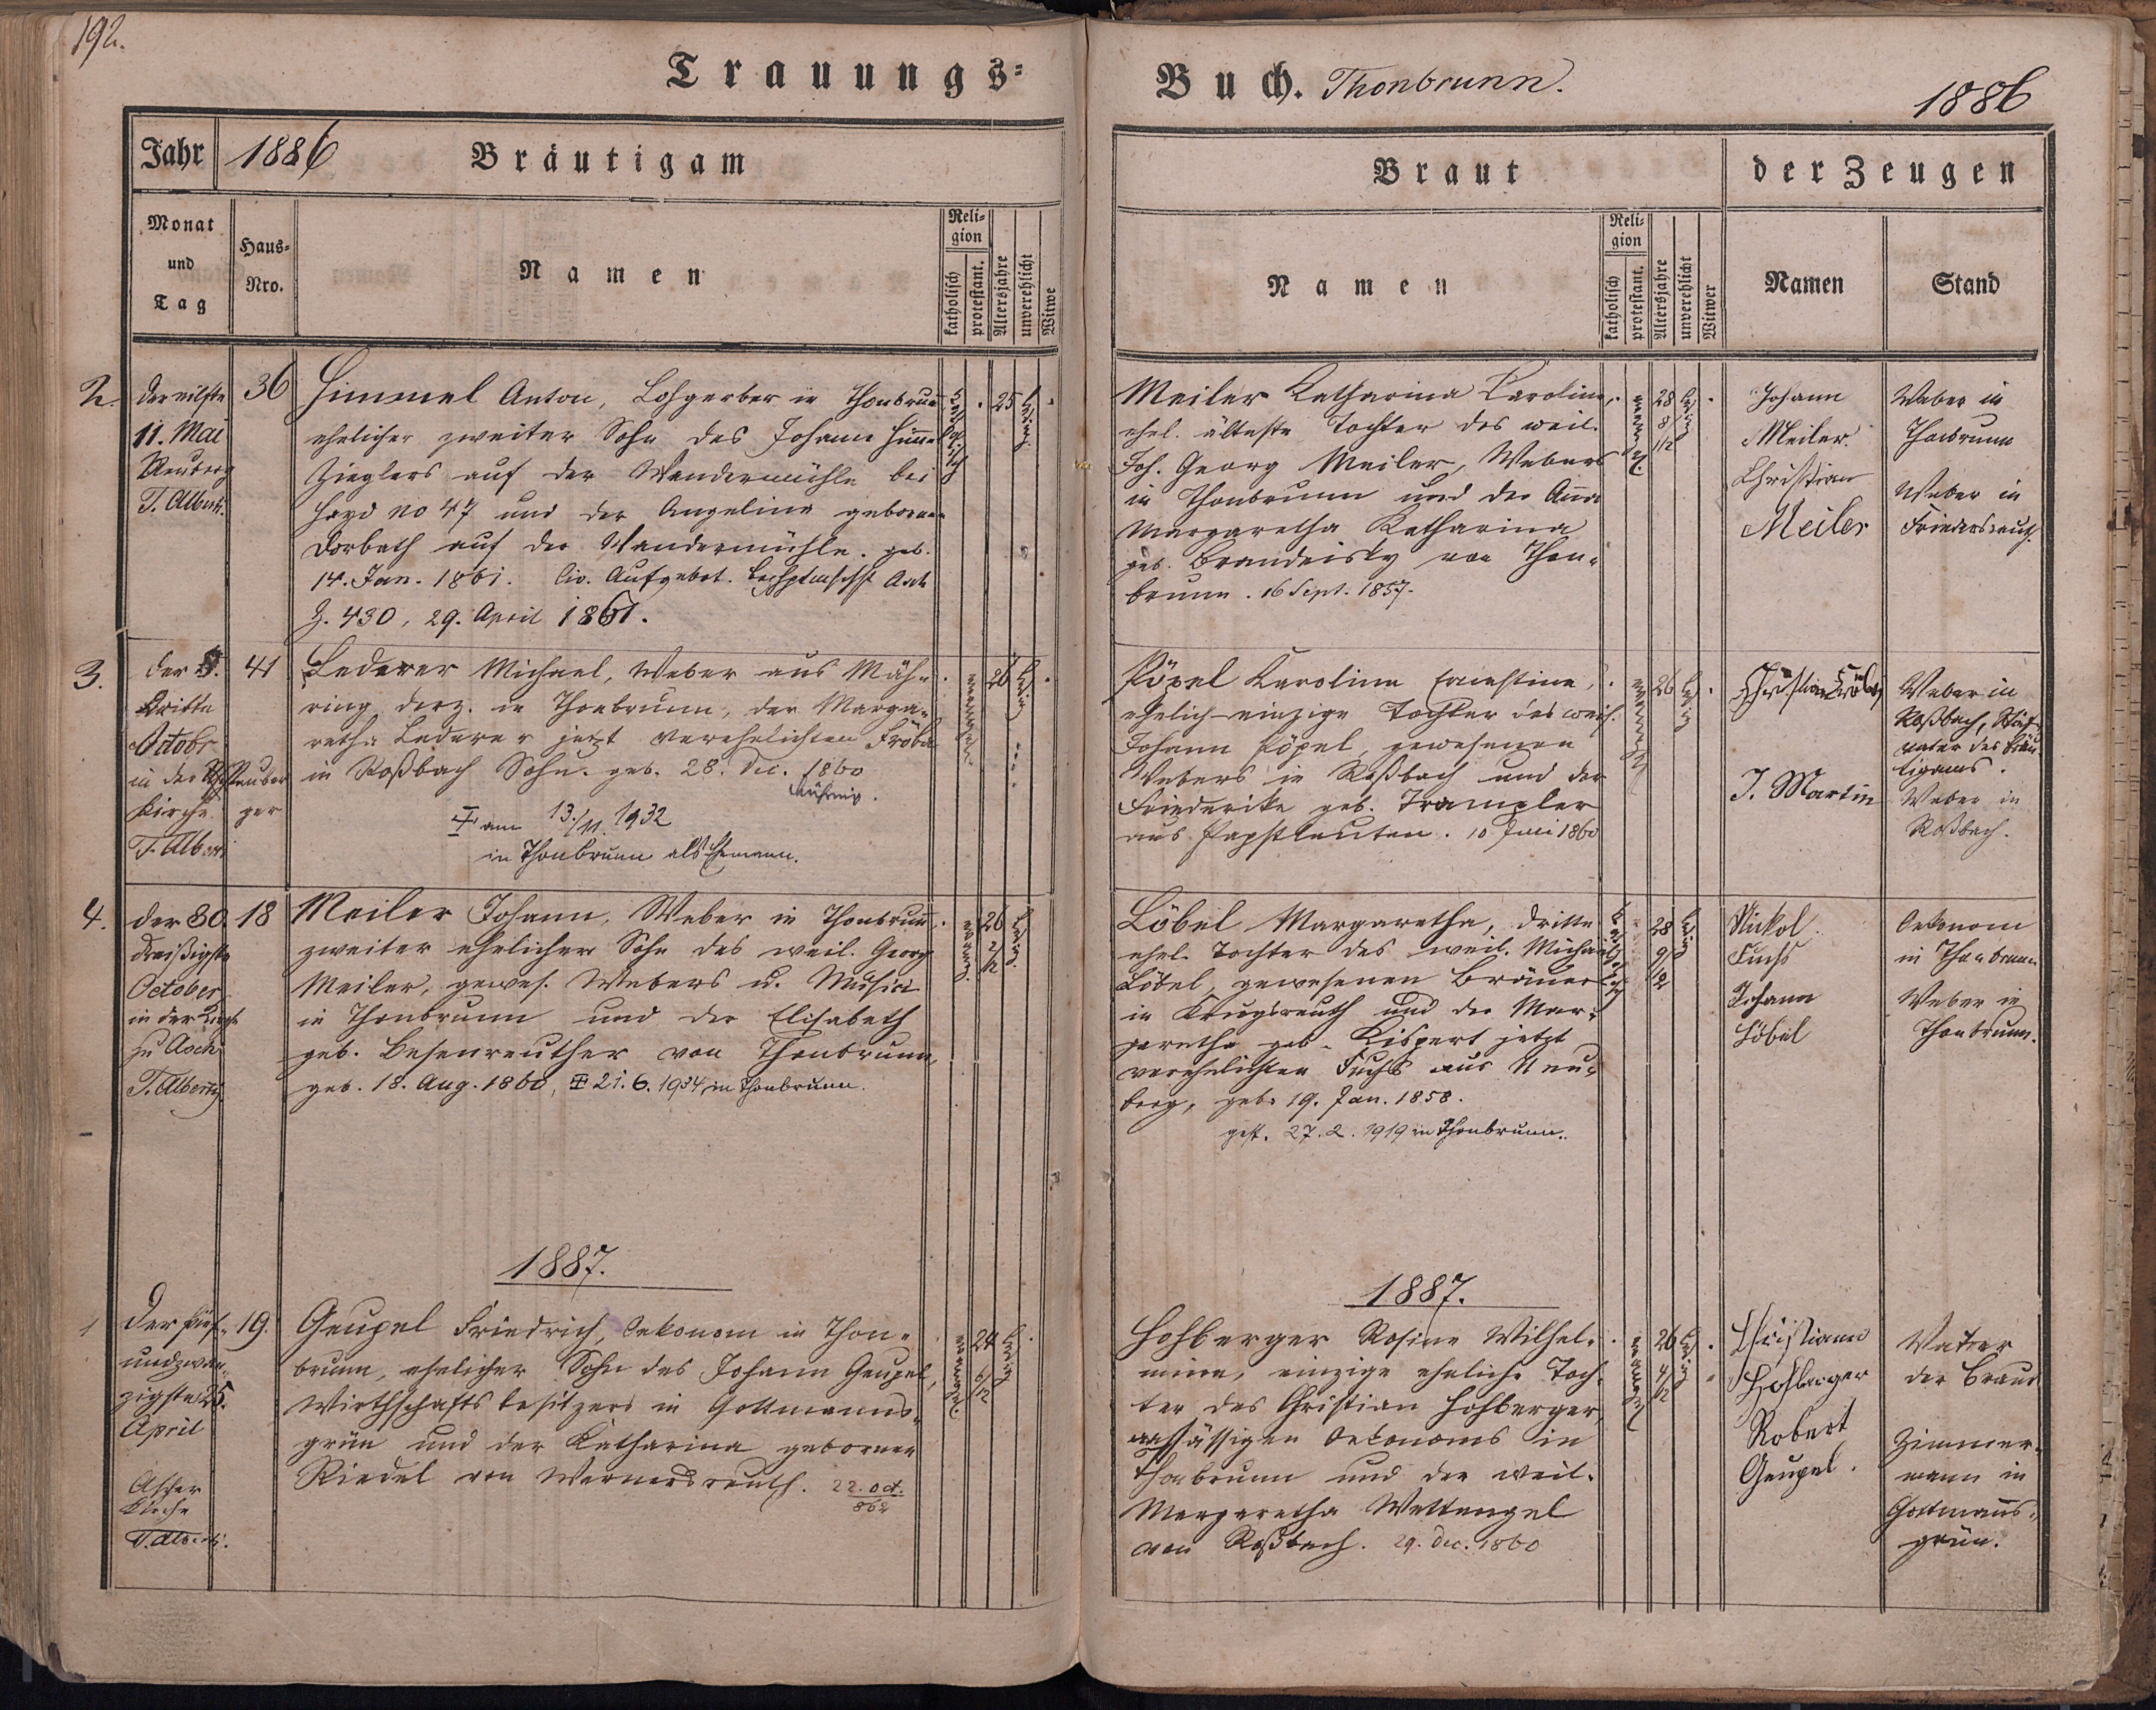 192.
Trauungs=
Buch. Thonbrunn.
1886
Jahr 1886 Bräutigam
Braut
der Zeugen
Monat
und
Tag
Haus-
Nro.
Namen
Reli-
gion
katholisch
protestant.
Altersjahre
unverehlicht
Witwe
Namen
Reli-
gion
katholisch
protestant.
Altersjahre
unverehlicht
Witwer
Namen
Stand
2.
der eilfte
11. Mai
Neuberg
T. Alberti.
36
Himmel Anton, Lohgerber in Thonbrunn
ehelicher zweiter Sohn des Johann Himmel
Zieglers auf der Wandermühle bei
Hayd No 47 und der Angelina geborenen
Dorbath auf der Wandermühle. geb.
14. Jan. 1861. Civ. Aufgebot.
Z. 430, 29. April 1861.
katholisch
25
ledig
Meiler Katharina Karolina,
ehel. älteste Tochter des weil.
Joh. Georg Meiler, Webers
in Thonbrunn und der Anna
Margaretha Katharina
geb. Brandeisky von Thon-
brunn. 16 Sept. 1857.
evangel.
28
8/12
ledig
Johann
Meiler.
Christian
Meiler
Weber in
Thonbrunn
Weber in
Friedersreuth.
3.
der 3.
Dritte
Octobr
in der Neuber
Kirche ger
T. Alberti
41
Lederer Michael, Weber aus Mäh-
ring derz. in Thonbrunn, der Marga-
retha Lederer jetzt verehelichten Fröbel
in Roßbach Sohn. geb. 28. Dec. 1860
Mähring.
am 13./11. 1932
in Thonbrunn als Ehemann.
evangelisch
26
ledig
Pöpel Karolina Ernestine,
ehelich-einzige Tochter des weil.
Johann Pöpel, gewesenen
Webers in Roßbach und der
Friederike geb. Trampler
aus Papstleuten. 10 Juni 1860
evangelisch
26
ledig
Christian
J. Martin
Weber in
Roßbach, Stief-
vater des Bräu-
tigams.
Weber in
Roßbach.
4.
der 30.
dreißigste
October
in der Kirche
zu Asch
T. Alberti
18
Meiler Johann, Weber in Thonbrunn,
zweiter ehelicher Sohn des weil. Georg
Meiler, gewes. Webers u. Musici
in Thonbrunn und der Elisabeth
geb. Besenreuther von Thonbrunn,
geb. 18. Aug. 1860, 21. 6. 1934 in Thonbrunn.
evangel.
26
2/12
ledig
Löbel Margaretha, dritte
ehel. Tochter des weil. Michael
Löbel, gewesenen Bräuer
in Krugsreuth und der Mar-
garetha geb. Kispert jetzt
verehelichten Fuchs aus Neu-
berg, geb. 19. Jan. 1858.
gest. 27. 2. 1919 in Thonbrunn.
katholisch
28
9/12
ledig
Nickol
Fuchs
Johann
Löbel
Oekonom
in Thonbrunn
Weber in
Thonbrunn.
1887.
1887.
1
Der fünf-
undzwan-
zigste 25.
April
Ascher
Kirche
T. Alberti.
19.
Geupel Friedrich, Oekonom in Thon-
brunn, ehelicher Sohn des Johann Geupel,
Wirthschaftsbesitzers in Gottmanns-
grün und der Katharina geborenen
Riedel von Wernersreuth. 22. Oct.
862
evangel.
24
6/12
ledig
Hohberger Rosine Wilhel-
mine, einzige eheliche Toch-
ter des Christian Hohberger,
ansässigen Oekonoms in
Thonbrunn und der weil.
Margaretha Wettengel
von Roßbach. 29. Dec. 1860
evangel.
26
4/12
ledig
Christian
Hohberger
Robert
Geupel.
Vater
der Braut
Zimmer-
mann in
Gottmanns-
grün.